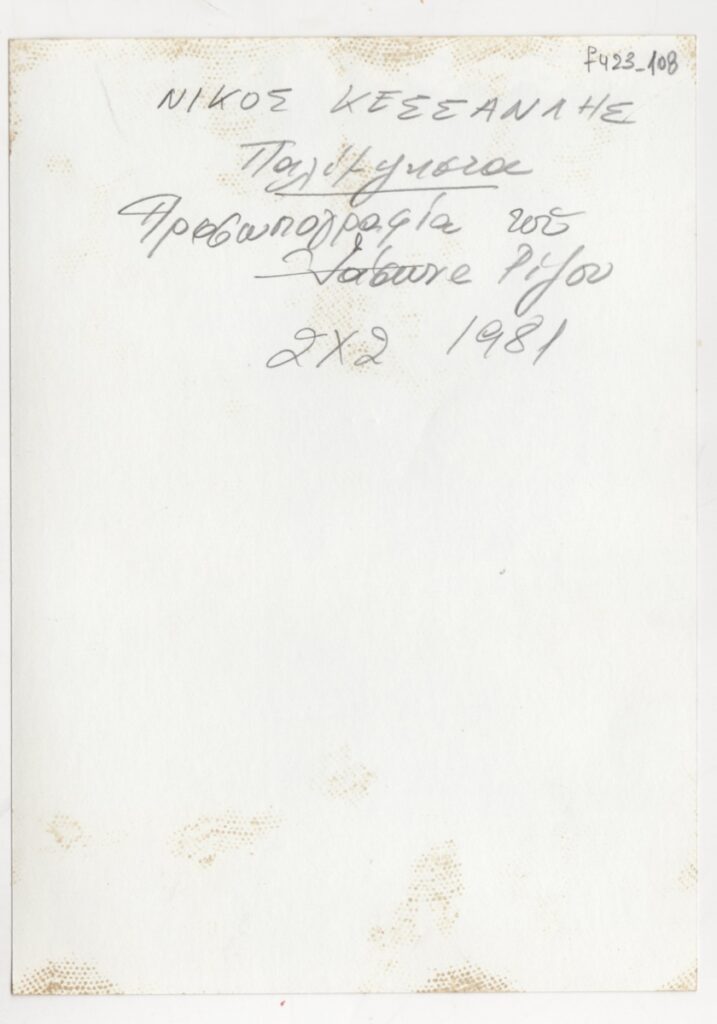 f423_108
ΝΙΚΟΣ ΚΕΣΣΑΝΛΗΣ
Παλίμψηστα
Προσωπογραφία τοῦ
Ρίζου
2Χ2 1981